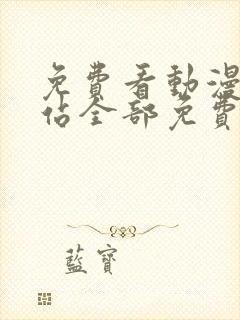 免費看動漫
佔全部免費
藍寶